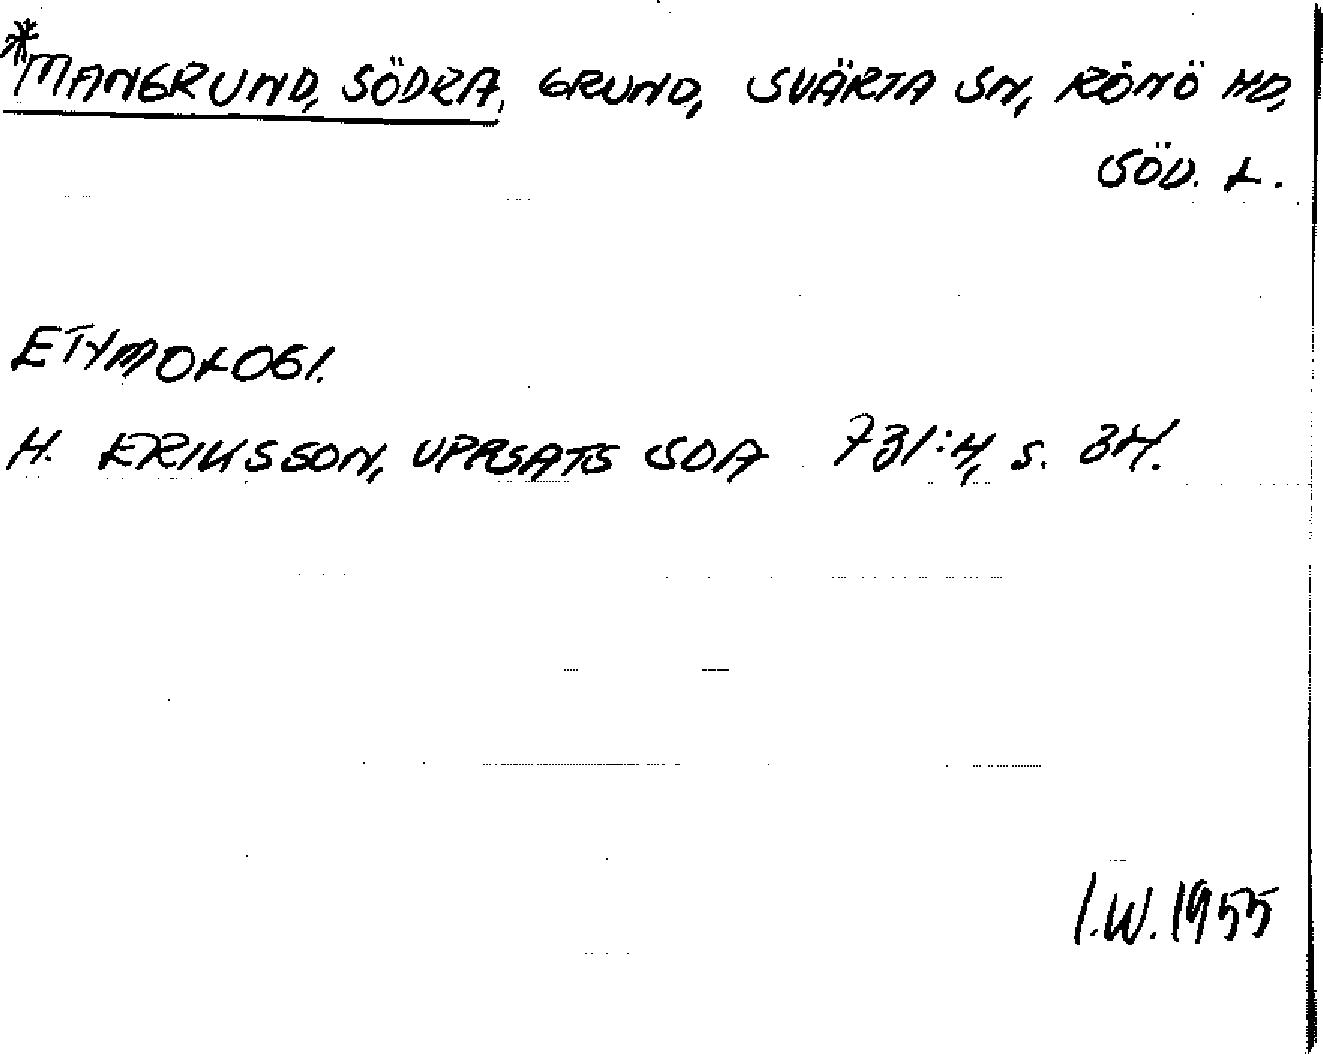 *MANGRUND, SÖDRA, GRUND, SVÄRTA SN, RÖNÖ HD,
SÖD. L.
ETYMOLOGI.
H. ERIKSSON, UPPSATS SOA 731:4, S. 34.
I.W. 1955